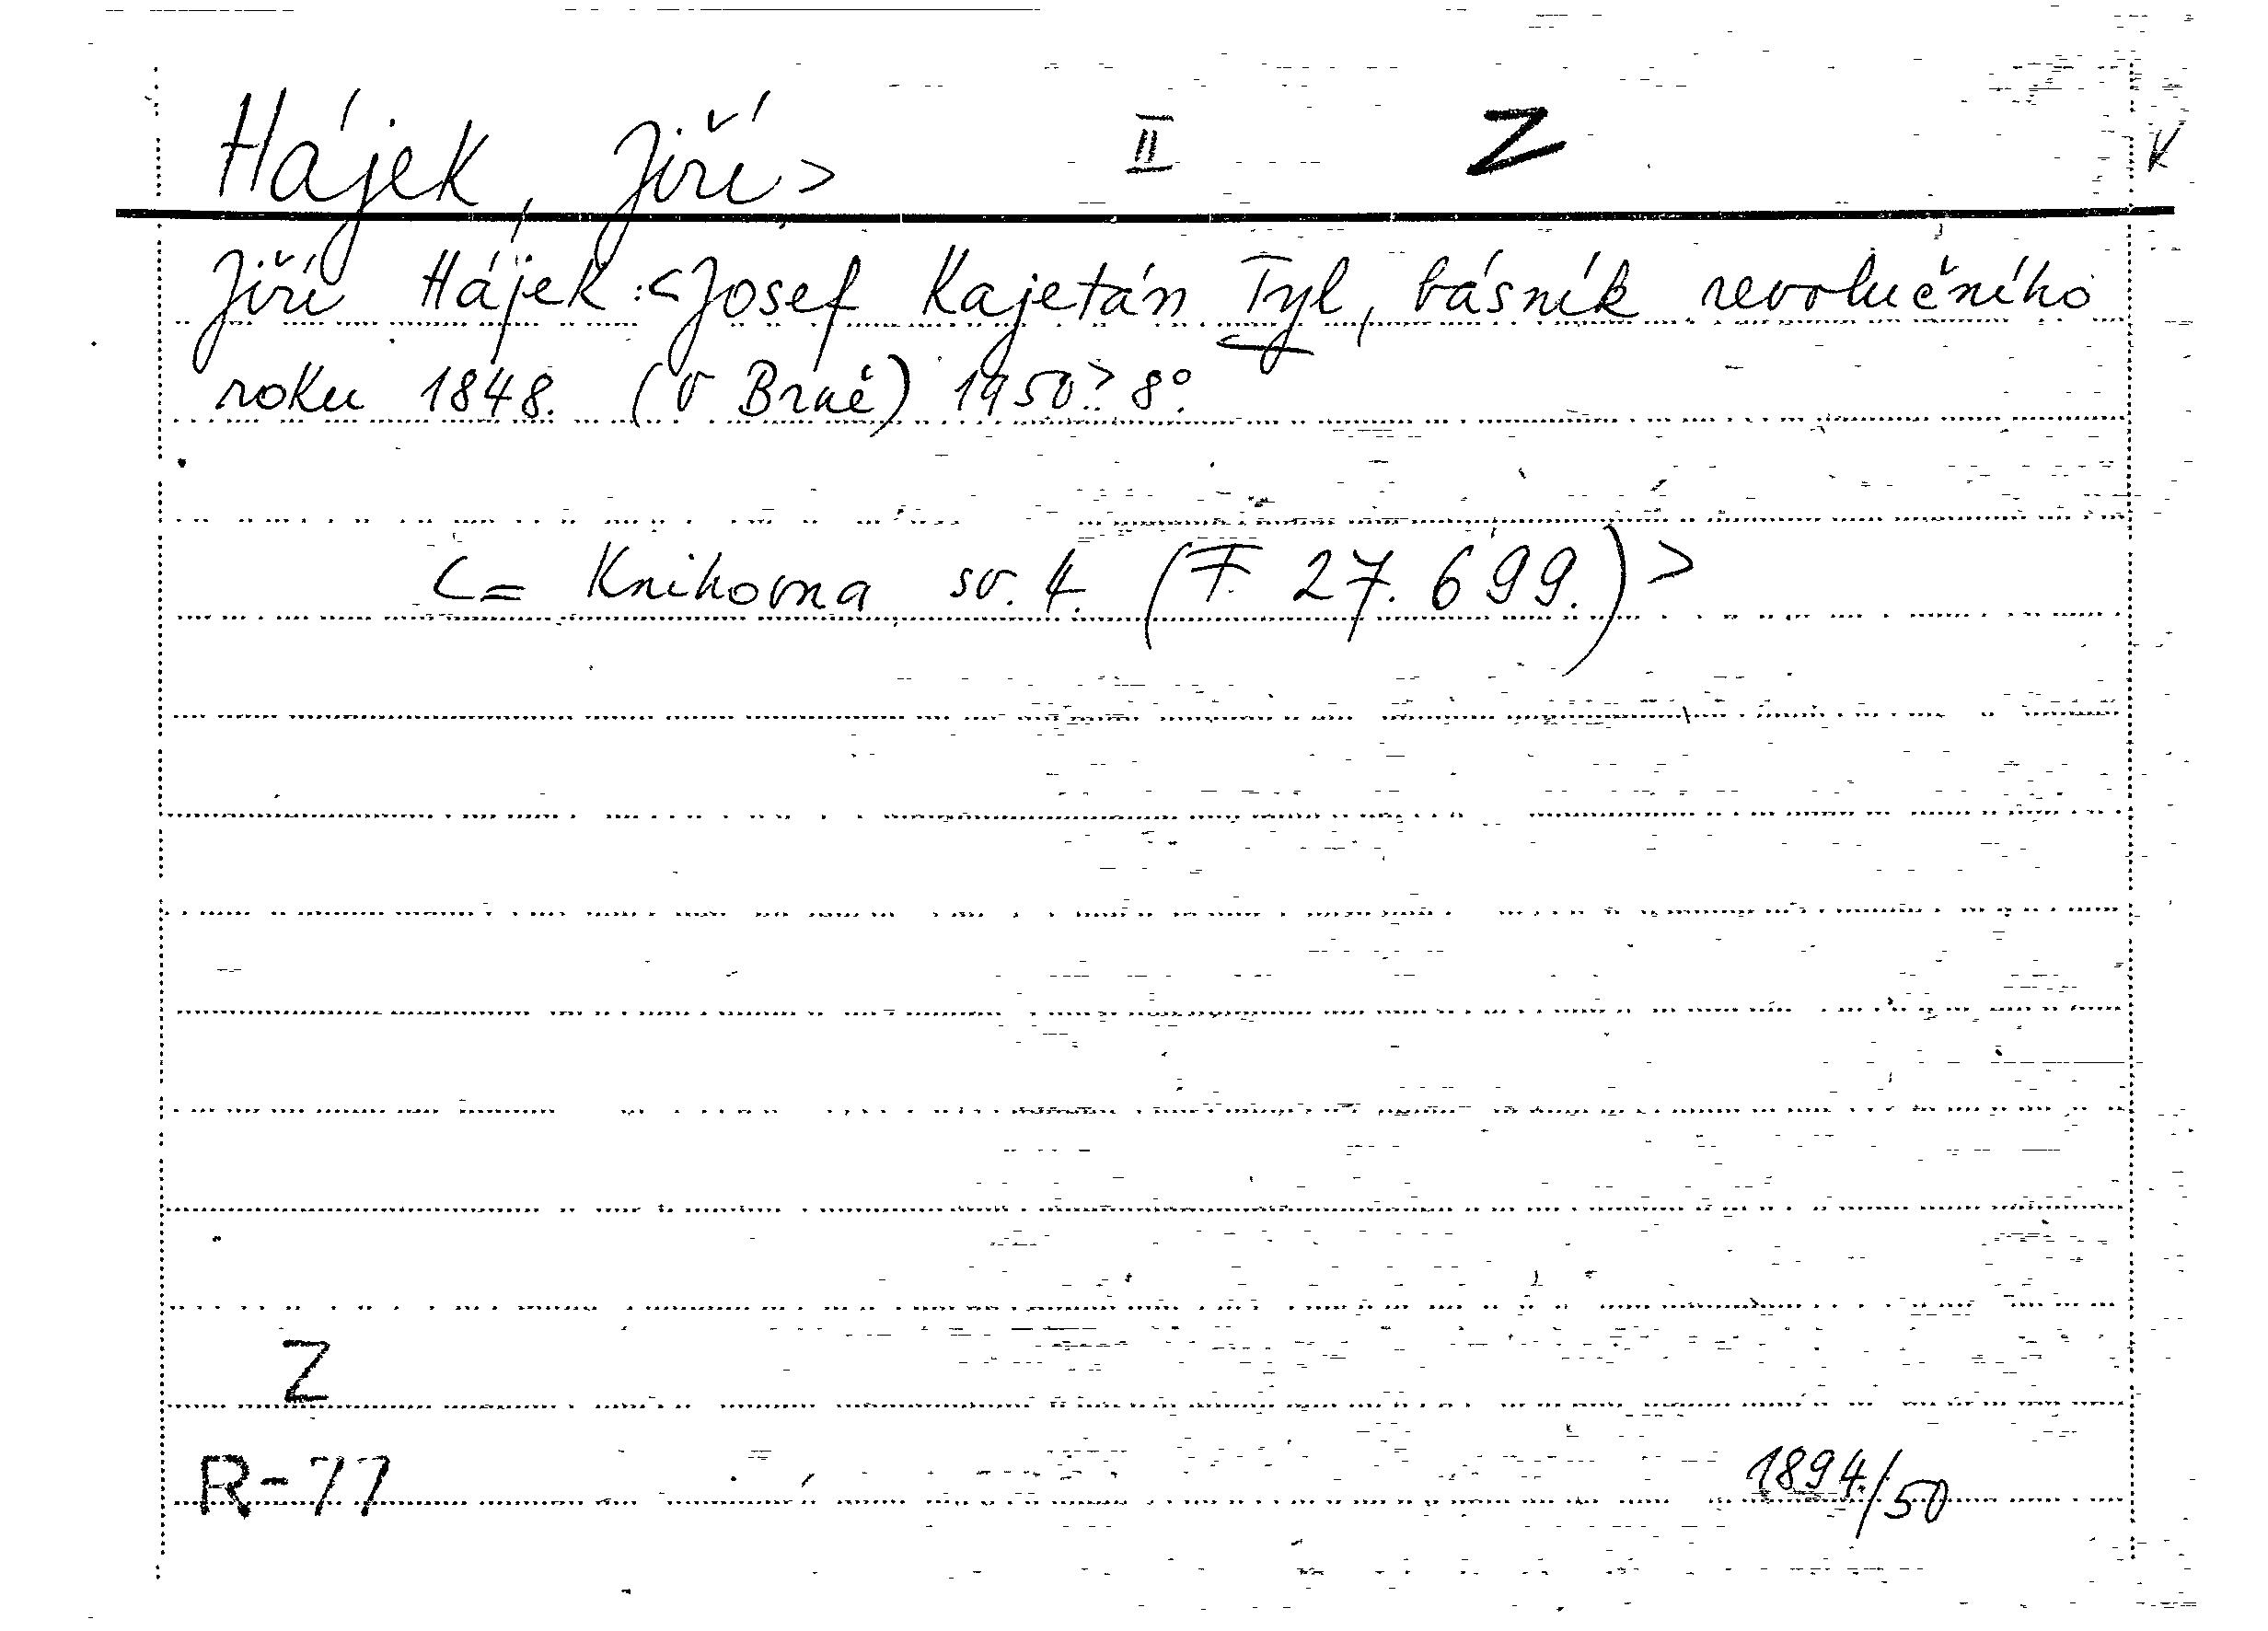 Hájek, Jiří> II Z K
Jiří Hájek :<Josef Kajetán Tyl, básník revolučního
roku 1848. (V Brně) 1950.> 8°.
<= Knihovna sv. 4. (F. 27.699.)>
Z
R-77 1894/50